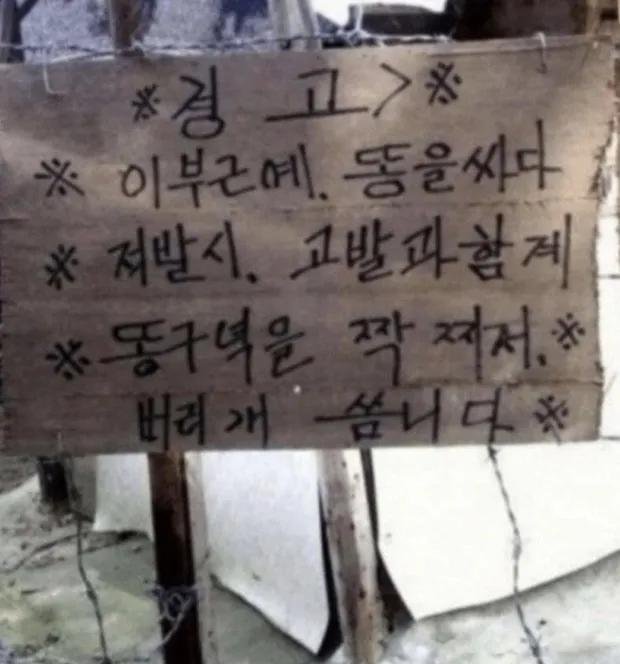 ※경 고>※
※ 이부근에. 똥을싸다
※ 저발시. 고발과함게
※똥구녁을 짝 찌저.※
버리개 씀니다※